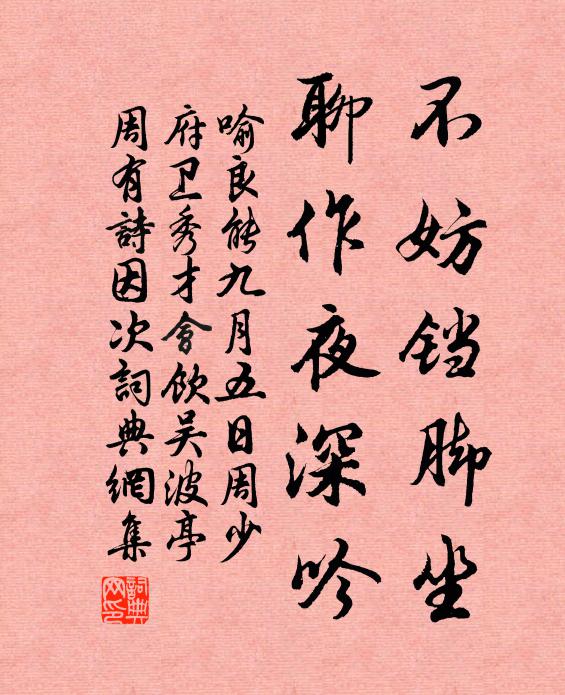 不妨铛脚坐
聊作夜深吟
喻良能九月五日周少
府卫秀才会飲吴波亭
周有詩因次詞典網集
詞典網印